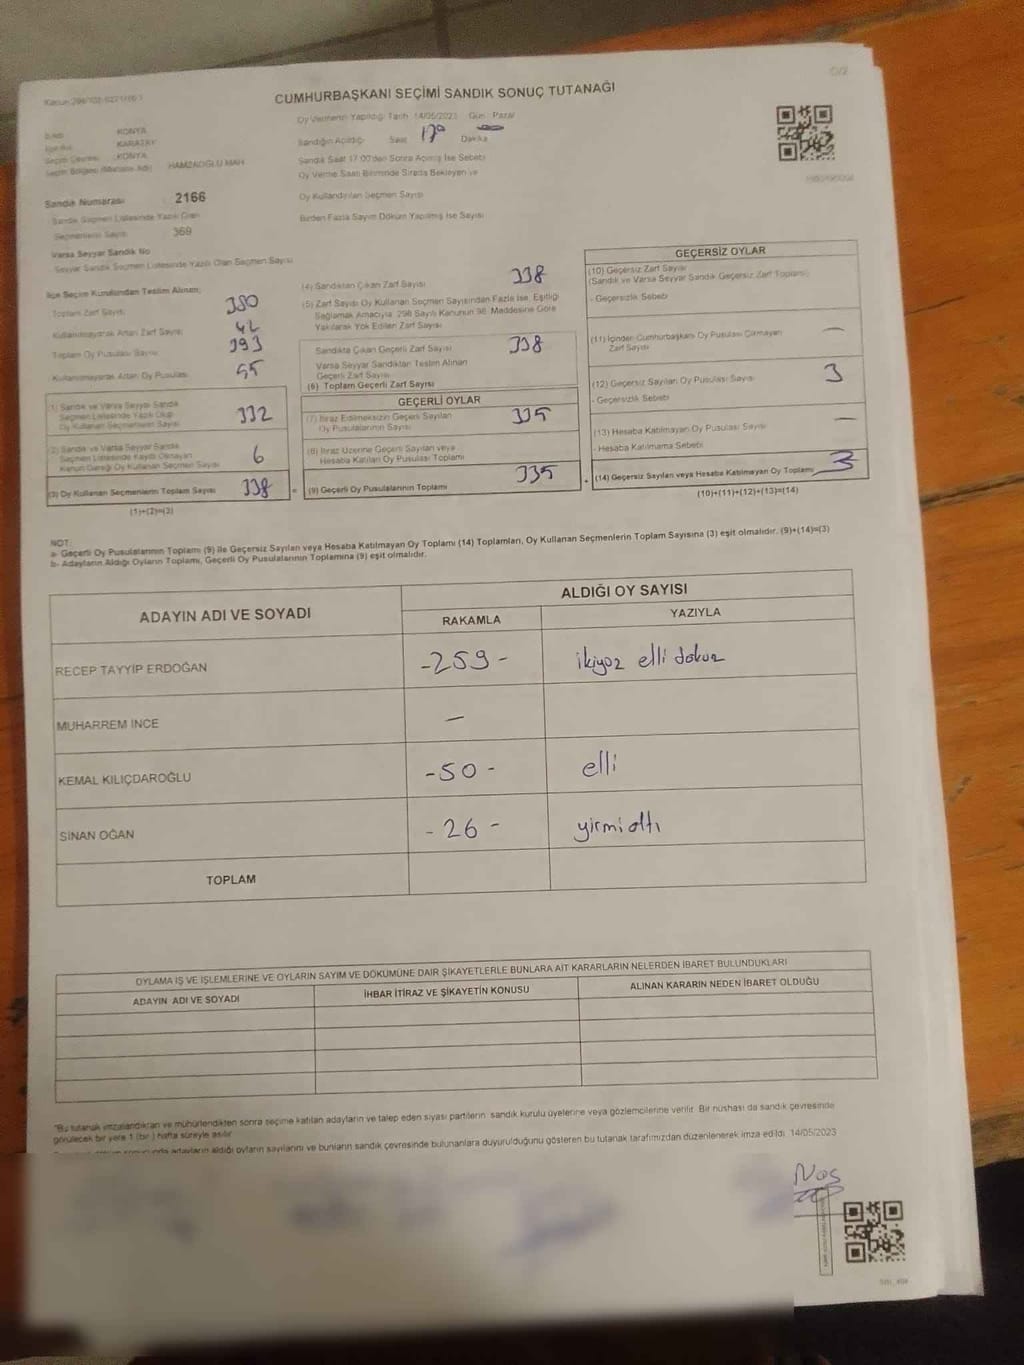 C/2
CUMHURBAŞKANI SEÇİMİ SANDIK SONUÇ TUTANAĞI
Oy Vermenin Yapıldığı Tarih 14/05/2023 Gün : Pazar
KONYA
Sandığın Açıldığı Saat 17⁰⁰ Dakika
KARATAY
Sandık Saat 17:00'den Sonra Açılmış İse Sebebi
KONYA
Seçim Bölgesi (Mahalle Adı) HAMZAOĞLU MAH
Oy Verme Saati Bitiminde Sırada Bekleyen ve
Oy Kullandırılan Seçmen Sayısı
Sandık Numarası 2166
Birden Fazla Sayım Döküm Yapılmış İse Sayısı
Sandık Seçmen Listesinde Yazılı Olan
Seçmenlerin Sayısı 369
Varsa Seyyar Sandık No
Seyyar Sandık Seçmen Listesinde Yazılı Olan Seçmen Sayısı
İlçe Seçim Kurulundan Teslim Alınan;
Toplam Zarf Sayısı 380
Kullanılmayarak Artan Zarf Sayısı 42
Toplam Oy Pusulası Sayısı 393
Kullanılmayarak Artan Oy Pusulası 55
(1) Sandık ve Varsa Seyyar Sandık
Seçmen Listesinde Yazılı Olup
Oy Kullanan Seçmenlerin Sayısı 332
(2) Sandık ve Varsa Seyyar Sandık
Seçmen Listesinde Kayıtlı Olmayan
Kanun Gereği Oy Kullanan Seçmen Sayısı 6
(3) Oy Kullanan Seçmenlerin Toplam Sayısı 338
(1)+(2)=(3)
(4) Sandıktan Çıkan Zarf Sayısı 338
(5) Zarf Sayısı Oy Kullanan Seçmen Sayısından Fazla İse, Eşitliği
Sağlamak Amacıyla, 298 Sayılı Kanunun 98. Maddesine Göre
Yakılarak Yok Edilen Zarf Sayısı
Sandıkta Çıkan Geçerli Zarf Sayısı 338
Varsa Seyyar Sandıktan Teslim Alınan
Geçerli Zarf Sayısı
(6) Toplam Geçerli Zarf Sayısı
GEÇERLİ OYLAR
(7) İtiraz Edilmeksizin Geçerli Sayılan
Oy Pusulalarının Sayısı 335
(8) İtiraz Üzerine Geçerli Sayılan veya
Hesaba Katılan Oy Pusulası Toplamı
= (9) Geçerli Oy Pusulalarının Toplamı 335
GEÇERSİZ OYLAR
(10) Geçersiz Zarf Sayısı
(Sandık ve Varsa Seyyar Sandık Geçersiz Zarf Toplamı)
- Geçersizlik Sebebi
(11) İçinden Cumhurbaşkanı Oy Pusulası Çıkmayan —
Zarf Sayısı
(12) Geçersiz Sayılan Oy Pusulası Sayısı 3
- Geçersizlik Sebebi
(13) Hesaba Katılmayan Oy Pusulası Sayısı —
- Hesaba Katılmama Sebebi
(14) Geçersiz Sayılan veya Hesaba Katılmayan Oy Toplamı 3
(10)+(11)+(12)+(13)=(14)
NOT:
a- Geçerli Oy Pusulalarının Toplamı (9) ile Geçersiz Sayılan veya Hesaba Katılmayan Oy Toplamı (14) Toplamları, Oy Kullanan Seçmenlerin Toplam Sayısına (3) eşit olmalıdır. (9)+(14)=(3)
b- Adayların Aldığı Oyların Toplamı, Geçerli Oy Pusulalarının Toplamına (9) eşit olmalıdır.
ADAYIN ADI VE SOYADI ALDIĞI OY SAYISI
RAKAMLA YAZIYLA
RECEP TAYYİP ERDOĞAN -259- ikiyüz elli dokuz
MUHARREM İNCE —
KEMAL KILIÇDAROĞLU -50- elli
SİNAN OĞAN -26- yirmi altı
TOPLAM
OYLAMA İŞ VE İŞLEMLERİNE VE OYLARIN SAYIM VE DÖKÜMÜNE DAİR ŞİKAYETLERLE BUNLARA AİT KARARLARIN NELERDEN İBARET BULUNDUKLARI
ADAYIN ADI VE SOYADI İHBAR İTİRAZ VE ŞİKAYETİN KONUSU ALINAN KARARIN NEDEN İBARET OLDUĞU
"Bu tutanak imzalandıktan ve mühürlendikten sonra seçime katılan adayların ve talep eden siyasi partilerin sandık kurulu üyelerine veya gözlemcilerine verilir. Bir nüshası da sandık çevresinde
görülecek bir yere 1 (bir) hafta süreyle asılır.
adayların aldığı oyların sayılarını ve bunların sandık çevresinde bulunanlara duyurulduğunu gösteren bu tutanak tarafımızdan düzenlenerek imza edildi. 14/05/2023